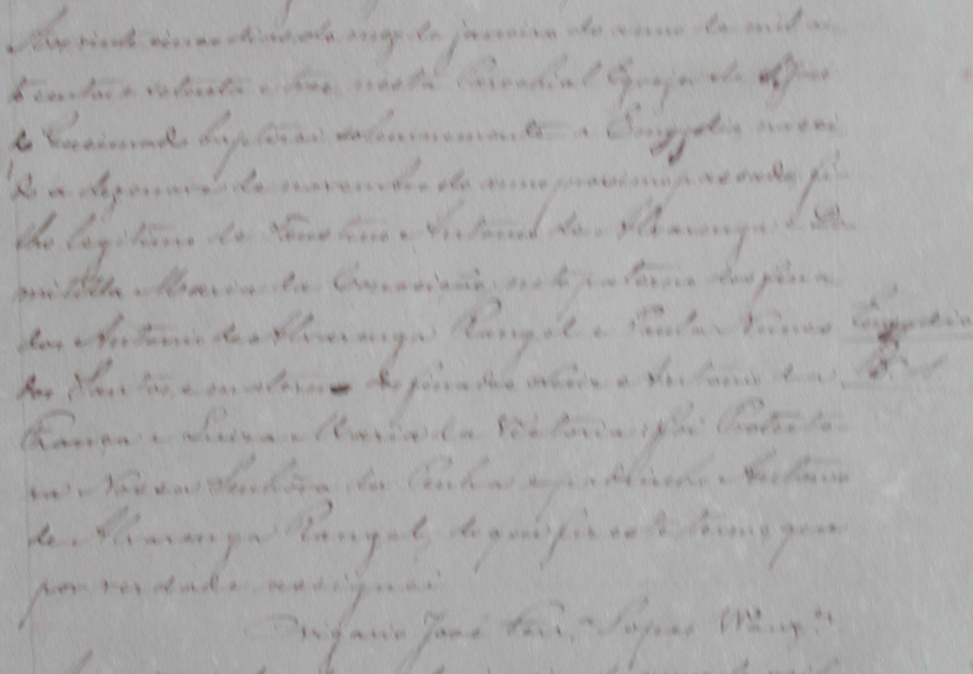 Aos vinte cinco dias do mez de janeiro do anno de mil oi-
to centos e setenta e tres, nesta Parochial Egreja de S. José
do Queimado baptisei solemnemente a nasci-
do a dezenove de novembro do anno proximo passado, fi-
lho legitimo de Antonio de Alvarenga e De-
mitilla Maria da Conceição, neto paterno dos fina-
dos Antonio de Alvarenga Rangel e Paula Nunes
dos Santos, e materno do finado Antonio da
França e Luiza Maria da Victoria: foi Protecto-
ra Nossa Senhora da Penha e padrinho Antonio
de Alvarenga Rangel, do que fiz este termo que
por verdade assignei
O Vigario José Lopes